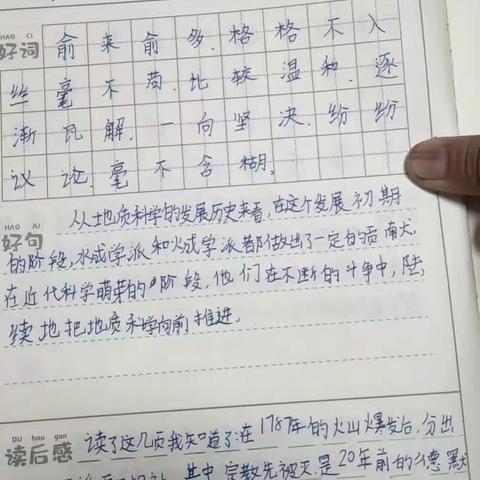 HAO CI
好词 俞来俞多.格格不入
丝毫不苟.比较温和.逐
渐瓦解.一向坚决.纷纷
议论.毫不含糊。
HAO JU
好句 从地质科学的发展历史来看,在这个发展初期
的阶段,水成学派和火成学派都做出了一定的贡献。
在近代科学萌芽的阶段,他们在不断的斗争中,陆
续地把地质科学向前推进。
DU hou gan
读后感 读了这几页我知道了:在1787年的火山爆发后,分出
其中 宗教先被灭.是20年前的 德 默